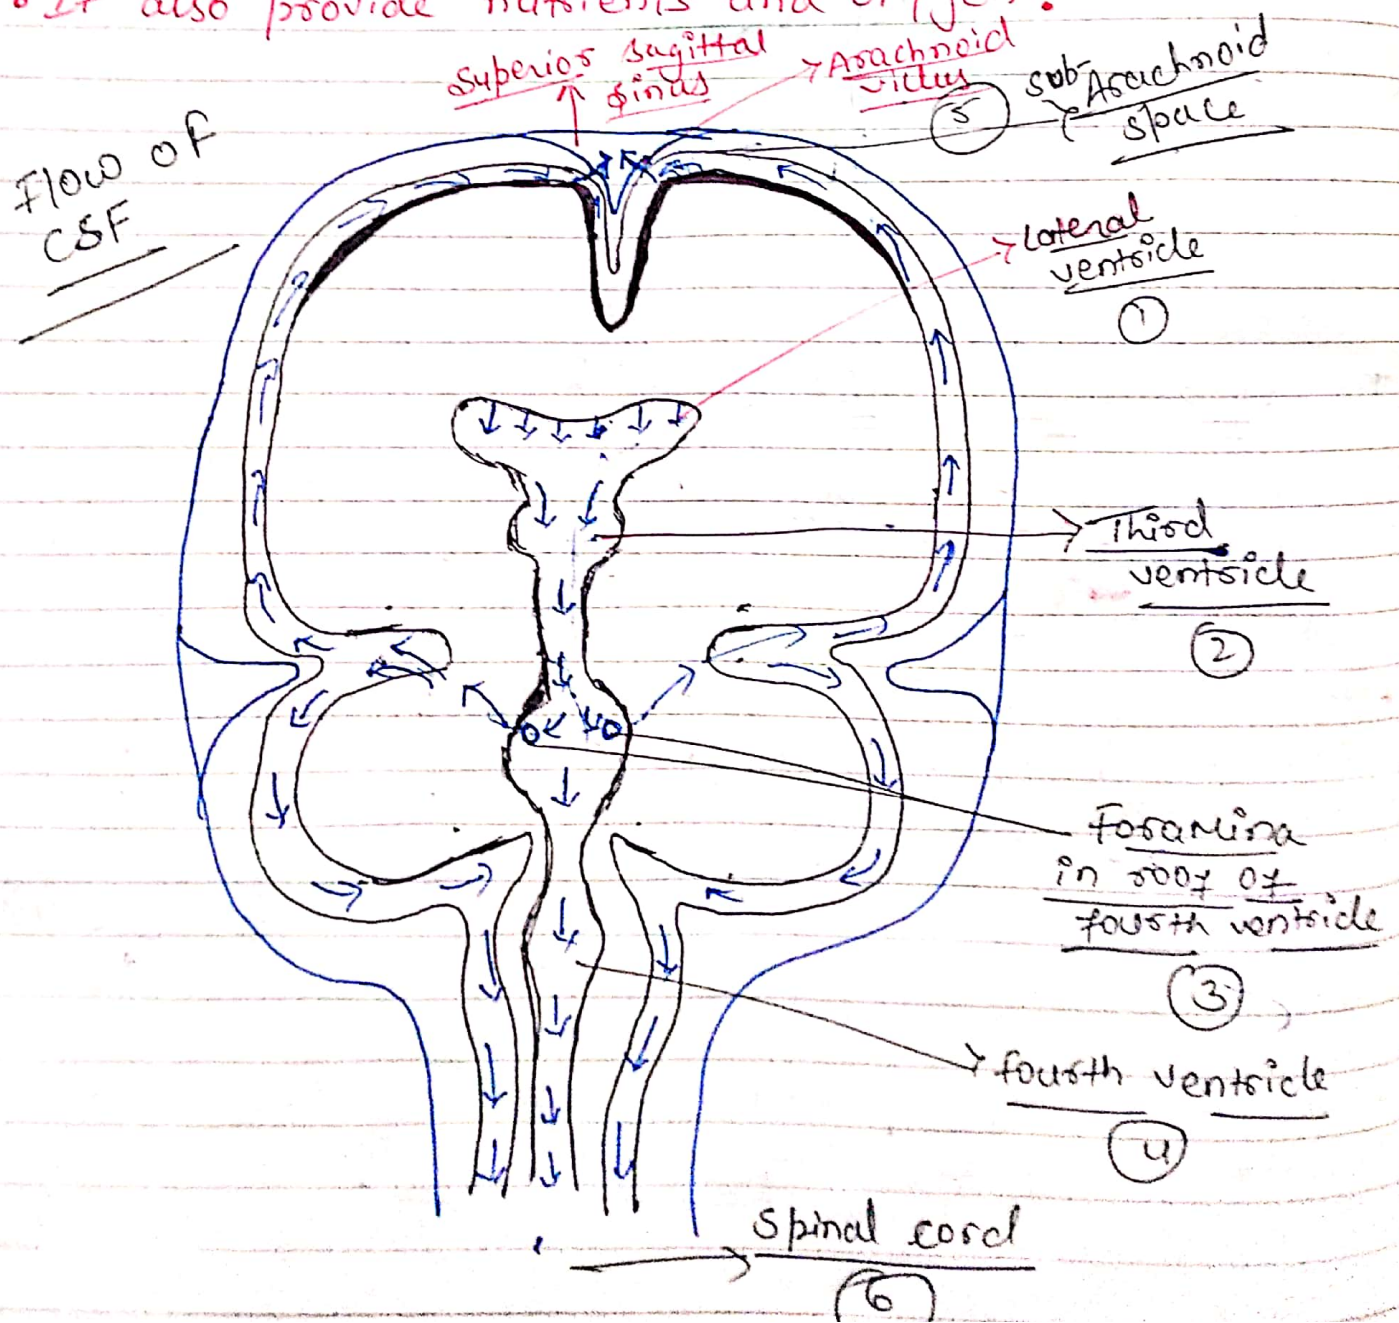 It also provide nutrients and
Superior sagittal
sinus
Arachnoid
villus
5
sub-
Arachnoid
space
Flow of
CSF
Lateral
ventricle
1
Third
ventricle
2
Foramina
in roof of
fourth ventricle
3
fourth ventricle
4
Spinal cord
6